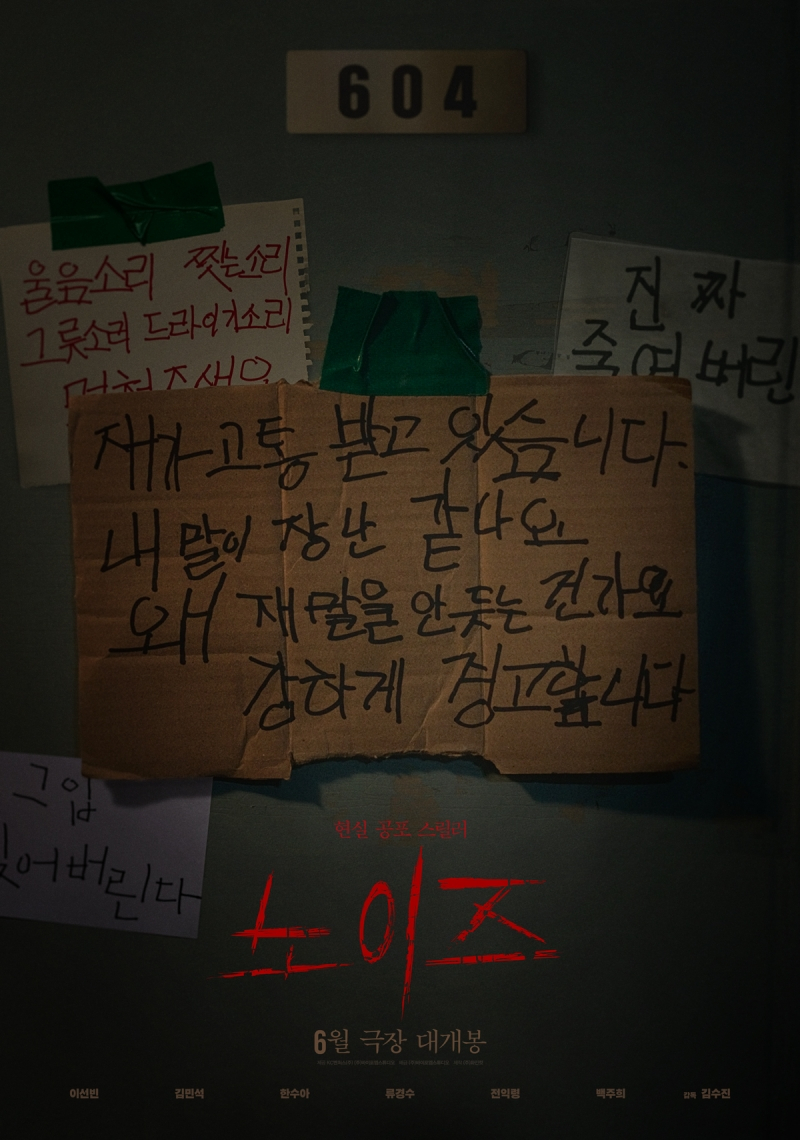 604
울음소리 찢는소리
그릇소리 드라이기소리
멈춰주세요
진짜
죽여버린
재가고통 받고 있습니다.
내 말이 장난 같나요
왜 재 말을 안듯는 건가요
강하게 경고합니다
그입
찢어버린다
현실 공포 스릴러
노이즈
6월 극장 대개봉
이선빈 김민석 한수아 류경수 전익령 백주희 감독 김수진